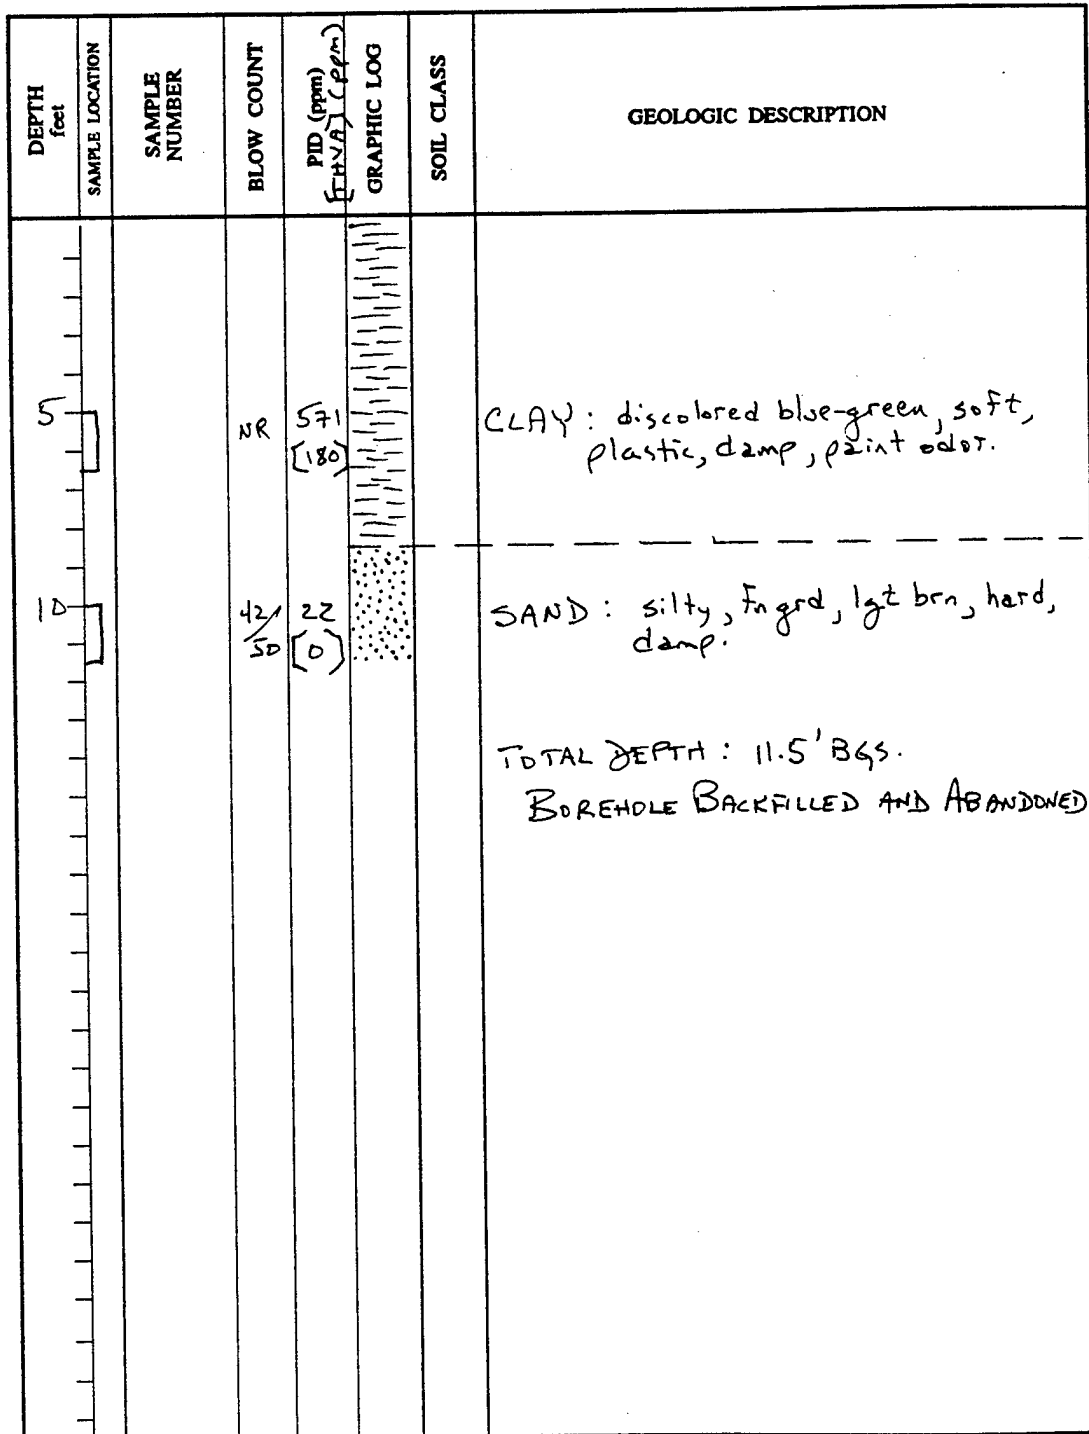 DEPTH
feet
SAMPLE LOCATION
SAMPLE
NUMBER
BLOW COUNT
PID (ppm)
[THVA] (ppm)
GRAPHIC LOG
SOIL CLASS
GEOLOGIC DESCRIPTION
5
NR
571
[180]
CLAY: discolored blue-green, soft,
plastic, damp, paint odor.
10
42/
50
22
[0]
SAND: silty, fn grd, lgt brn, hard,
damp.
TOTAL DEPTH: 11.5' BGS.
BOREHOLE BACKFILLED AND ABANDONED